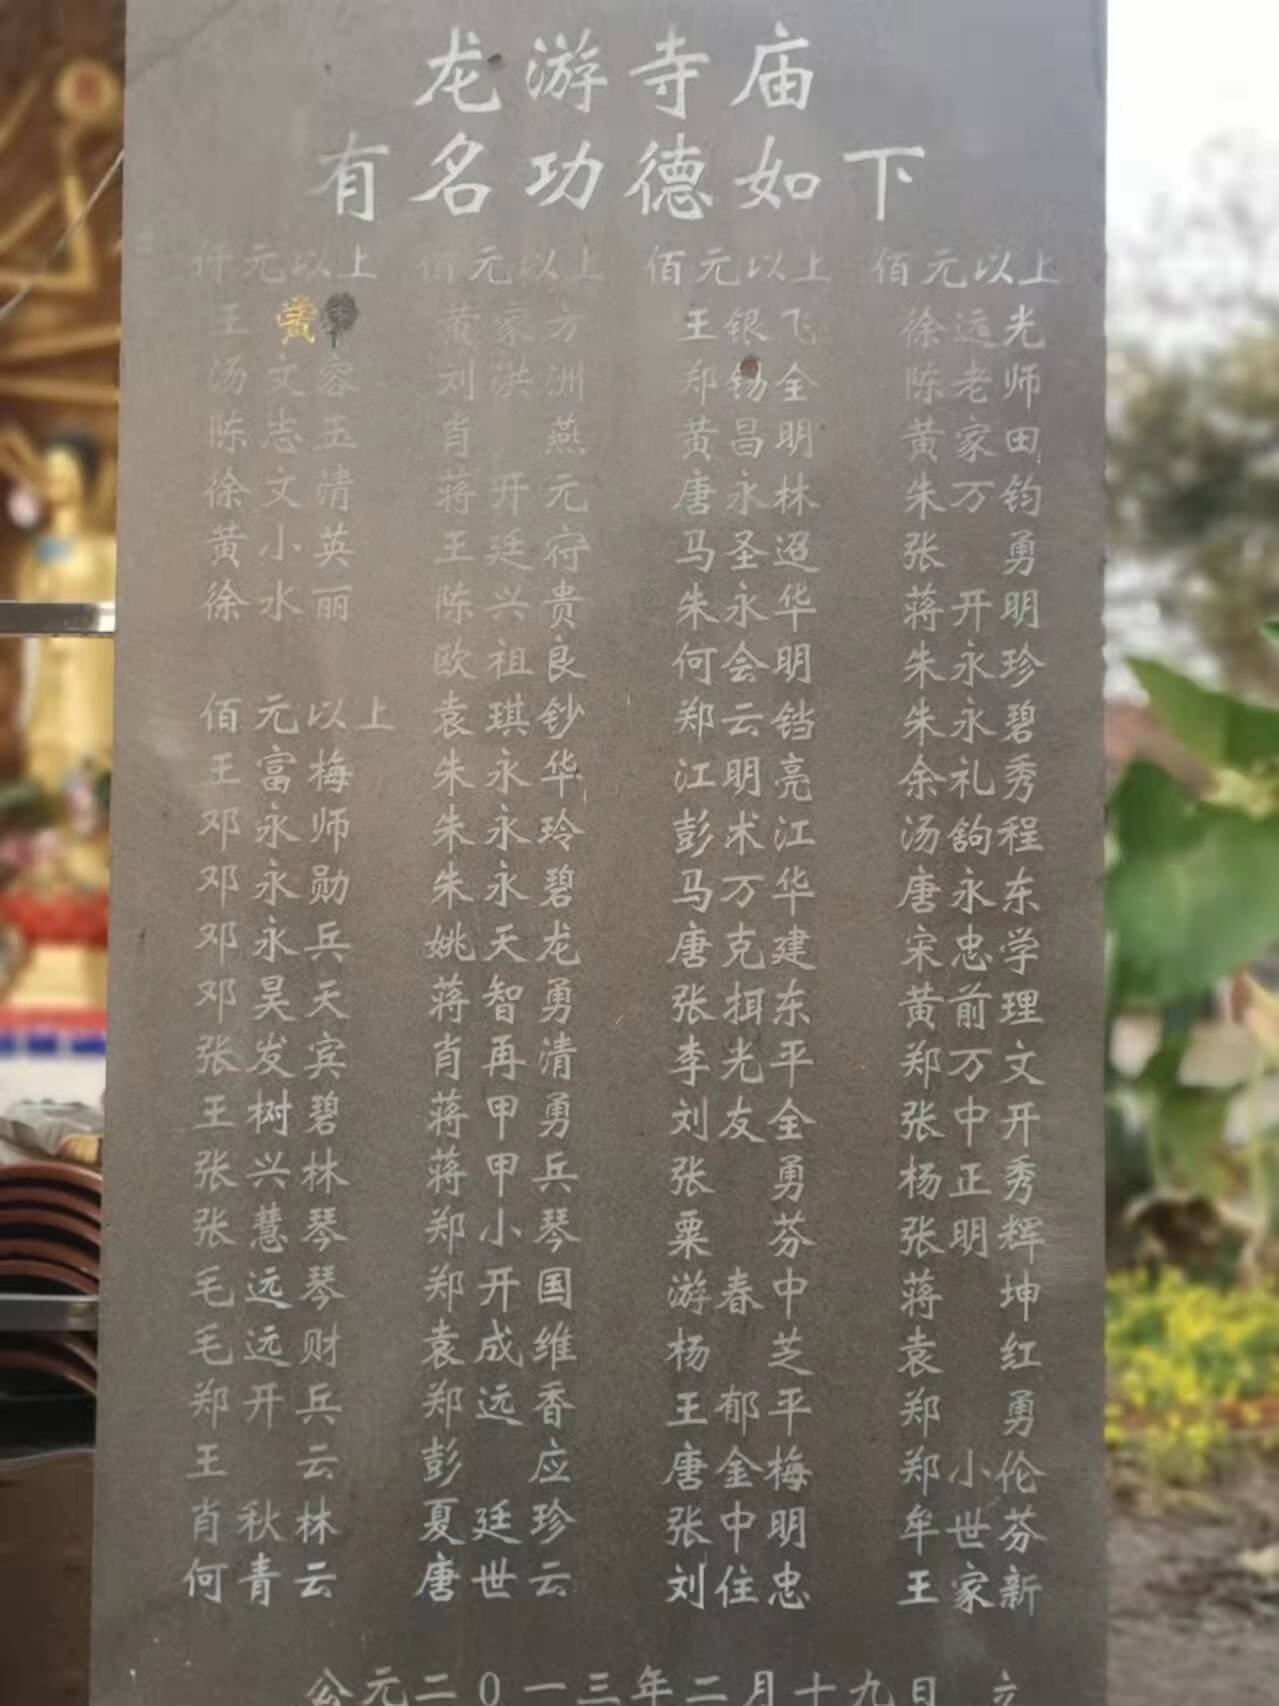 龙游寺庙
有名功德如下
仟元以上 佰元以上 佰元以上 佰元以上
王 黄家方 王银飞 徐远光
汤文容 刘洪洲 郑锡全 陈老师
陈志玉 肖燕 黄昌明 黄家田
徐文清 蒋开元 唐永林 朱万钧
黄小英 王廷府 马圣迢 张勇
徐水丽 陈兴贵 朱永华 蒋开明
欧祖良 何会明 朱永珍
佰元以上 袁琪钞 郑云铛 朱永碧
王富梅 朱永华 江明亮 余礼秀
邓永师 朱永玲 彭术江 汤程
邓永勋 朱永碧 马万华 唐永东
邓永兵 姚天龙 唐克建 宋忠学
邓昊天 蒋智勇 张挕东 黄前理
张发宾 肖再清 李光平 郑万文
王树碧 蒋甲勇 刘友全 张中开
张兴林 蒋甲兵 张勇 杨正秀
张慧琴 郑小琴 粟芬 张明辉
毛远琴 郑开国 游春中 蒋坤
毛远财 袁成维 杨芝 袁红
郑开兵 郑远香 王郁平 郑勇
王云 彭应 唐金梅 郑小伦
肖秋林 夏廷珍 张中明 牟世芬
何青云 唐世云 刘住忠 王家新
公元二0一三年二月十九日 立